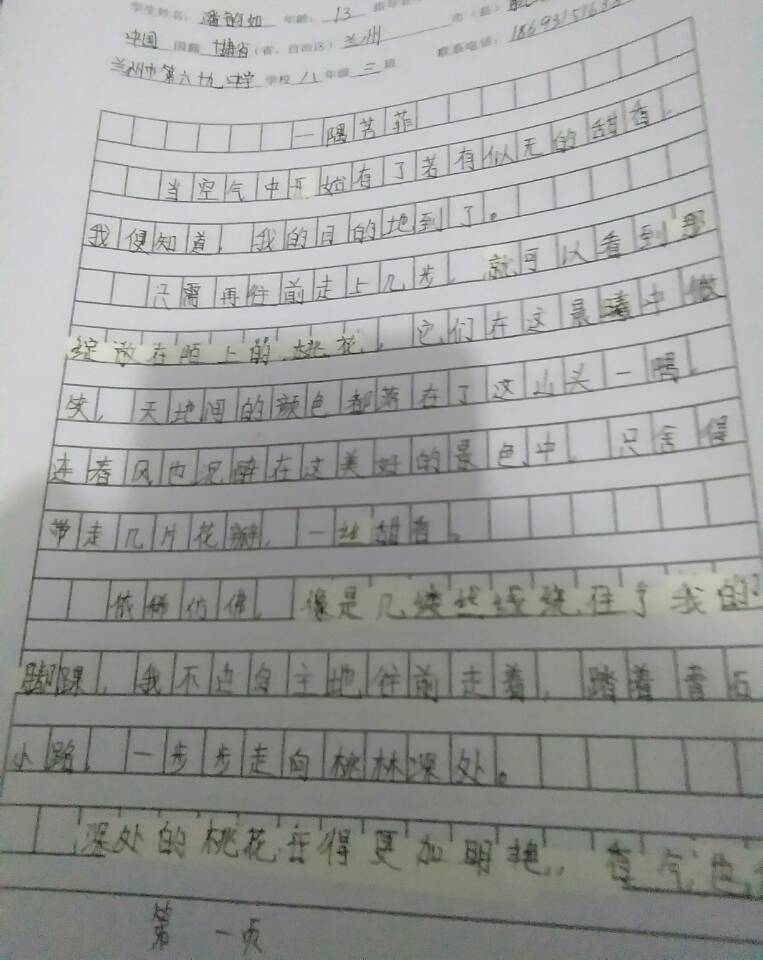 学生姓名: 年龄: 13
中国 国籍 甘肃省(省、自治区) 兰州 市(县)
兰州市第六十九中学 学校 八 年级 三 班 联系电话:
一隅芳菲
当空气中开始有了若有似无的甜香,
我便知道,我的目的地到了。
只需再往前走上几步,就可以看到那
绽放在陌上的桃花,它们在这晨曦中微
笑,天地间的颜色都落在了这山头一隅,
连着风也沉醉在这美好的景色中,只舍得
带走几片花瓣,一丝甜香。
依稀仿佛,像是几缕丝线绕住了我的
脚踝,我不由自主地往前走着,踏着青石
小路,一步步走向桃林深处。
深处的桃花开得更加明艳,香气也
第一页